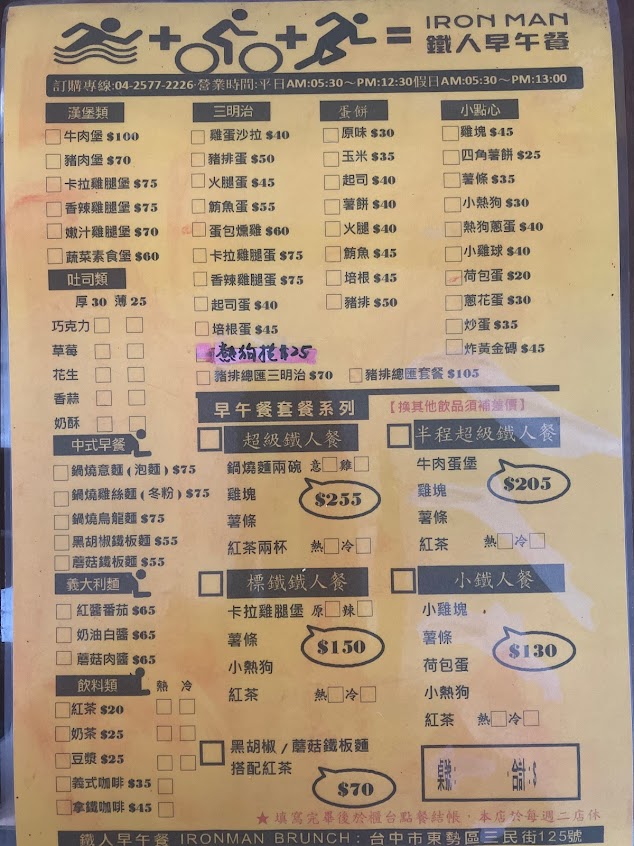 IRON MAN
鐵人早午餐
訂購專線:04-2577-2226 營業時間:平日AM:05:30~PM:12:30假日AM:05:30~PM:13:00
漢堡類
牛肉堡 $100
豬肉堡 $70
卡拉雞腿堡 $75
香辣雞腿堡 $75
嫩汁雞腿堡 $70
蔬菜素食堡 $60
吐司類
厚 30 薄 25
巧克力
草莓
花生
香蒜
奶酥
中式早餐
鍋燒意麵(泡麵) $75
鍋燒雞絲麵(冬粉) $75
鍋燒烏龍麵 $75
黑胡椒鐵板麵 $55
蘑菇鐵板麵 $55
義大利麵
紅醬番茄 $65
奶油白醬 $65
蘑菇肉醬 $65
飲料類 熱 冷
紅茶 $20
奶茶 $25
豆漿 $25
義式咖啡 $35
拿鐵咖啡 $45
三明治
雞蛋沙拉 $40
豬排蛋 $50
火腿蛋 $45
鮪魚蛋 $55
蛋包燻雞 $60
卡拉雞腿蛋 $75
香辣雞腿蛋 $75
起司蛋 $40
培根蛋 $45
$25
豬排總匯三明治 $70
豬排總匯套餐 $105
蛋餅
原味 $30
玉米 $35
起司 $40
薯餅 $40
火腿 $40
鮪魚 $45
培根 $45
豬排 $50
小點心
雞塊 $45
四角薯餅 $25
薯條 $35
小熱狗 $30
熱狗蔥蛋 $40
小雞球 $40
荷包蛋 $20
蔥花蛋 $30
炒蛋 $35
炸黃金磚 $45
早午餐套餐系列
【換其他飲品須補差價】
超級鐵人餐
鍋燒麵兩碗 意 雞
雞塊
薯條
紅茶兩杯 熱 冷
$255
半程超級鐵人餐
牛肉蛋堡
雞塊
薯條
紅茶 熱 冷
$205
標鐵鐵人餐
卡拉雞腿堡 原 辣
薯條
小熱狗
紅茶 熱 冷
$150
小鐵人餐
小雞塊
薯條
荷包蛋
小熱狗
紅茶 熱 冷
$130
黑胡椒/蘑菇鐵板麵
搭配紅茶
$70
★ 填寫完畢後於櫃台點餐結帳，本店於每週二店休
鐵人早午餐 IRONMAN BRUNCH: 台中市東勢區三民街125號